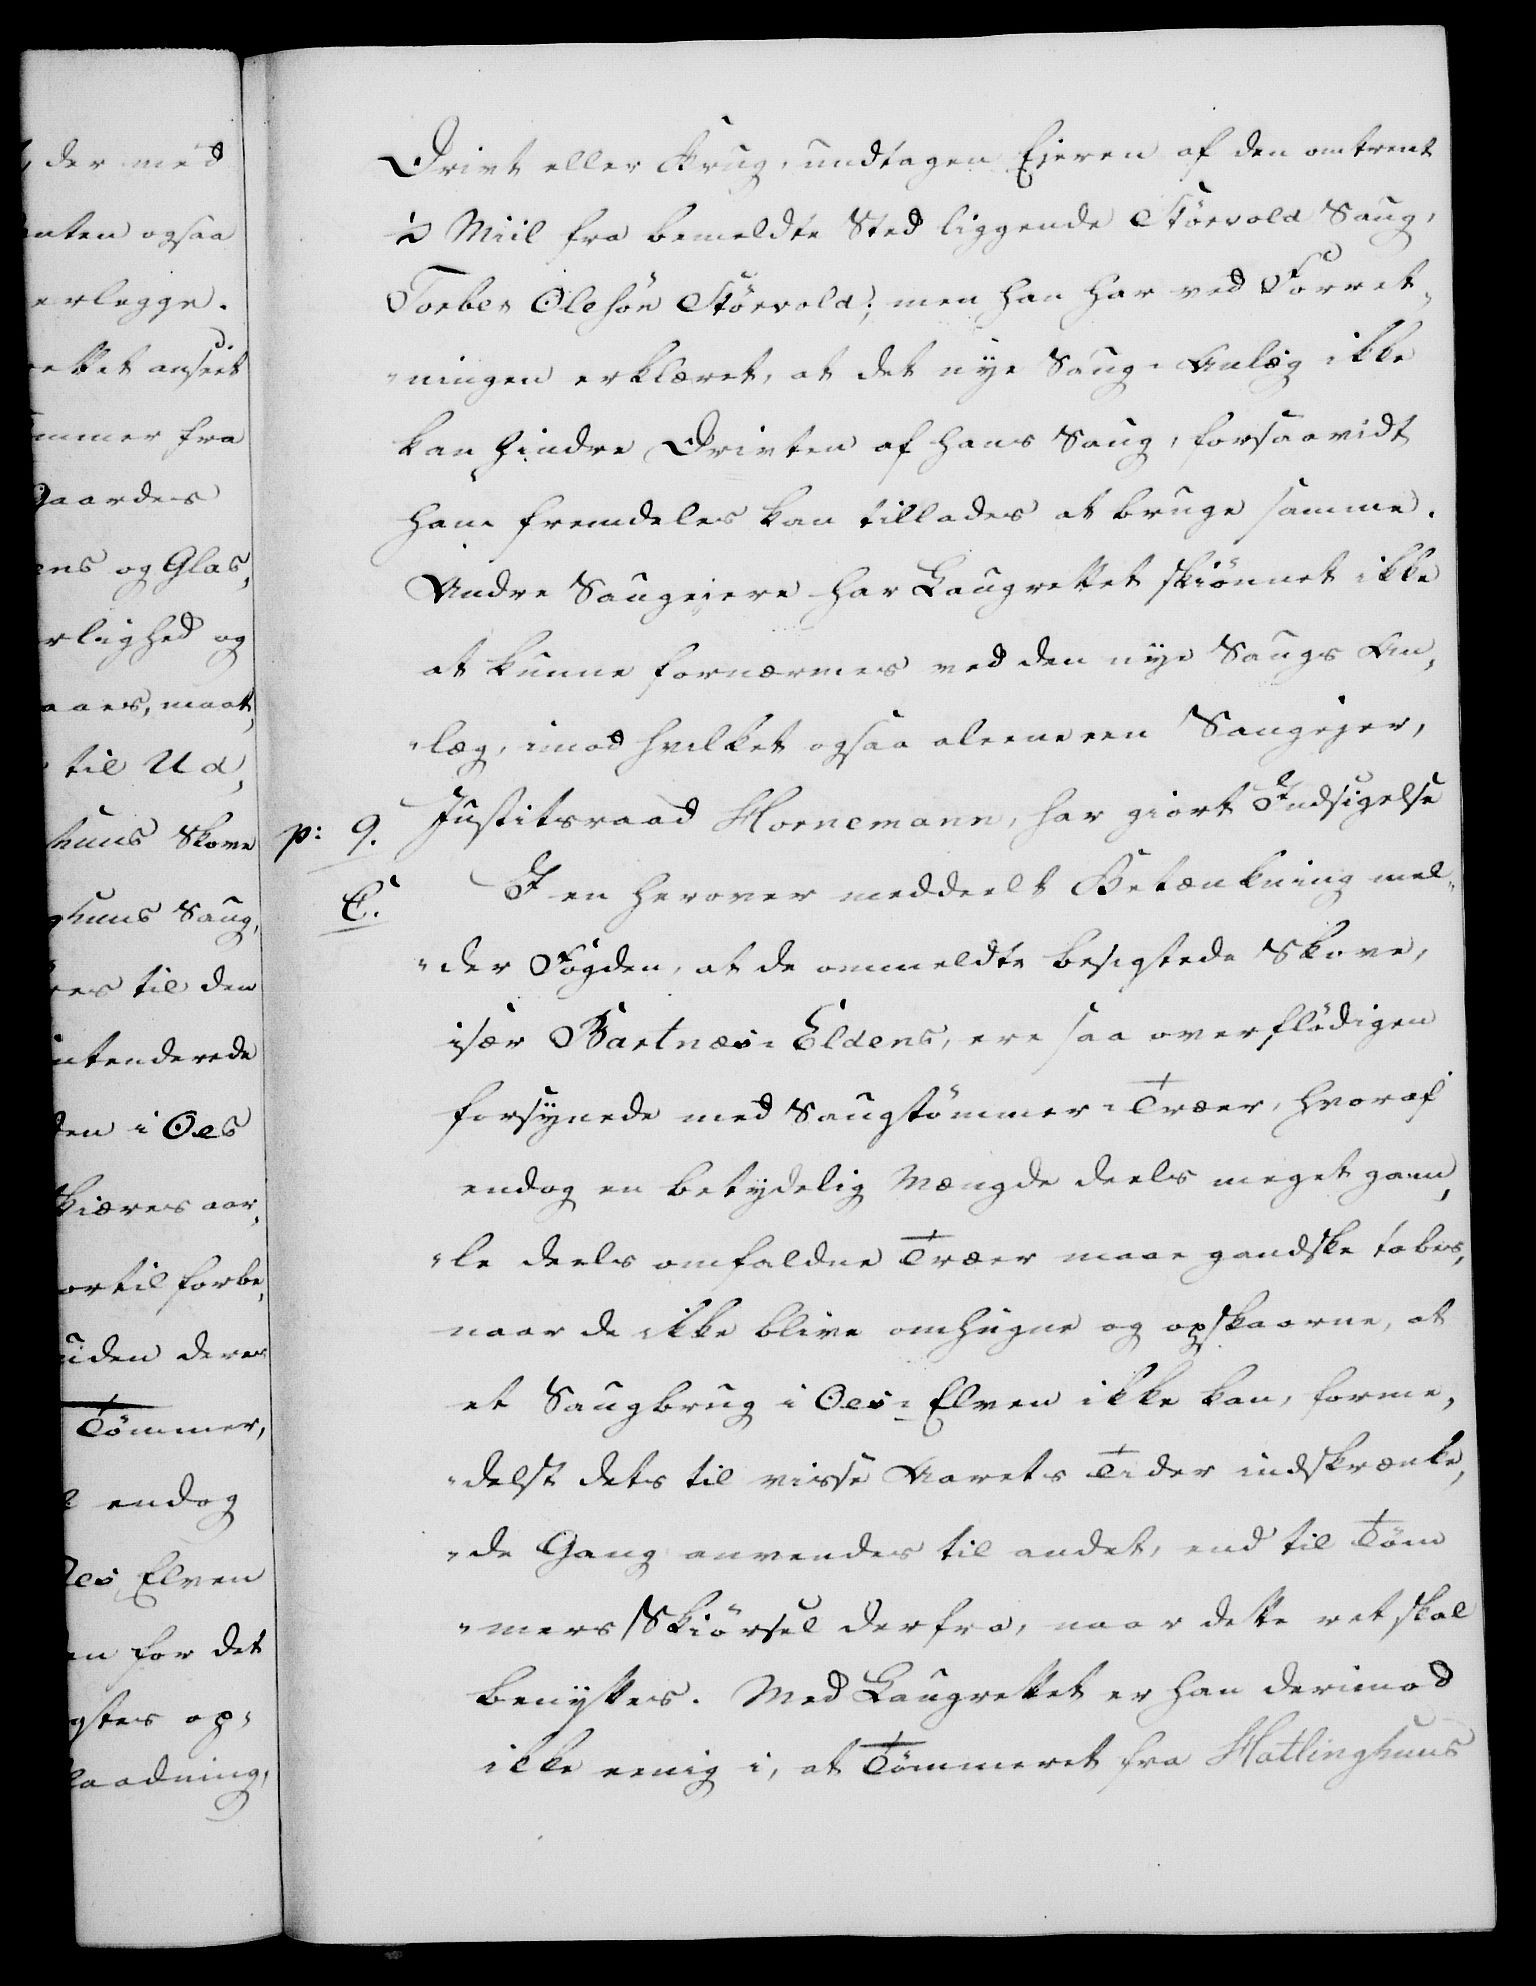 der med
ogsaa
erlegge.
ettet anseet
ømmer fra
Gaardes
ens og Glas,
rlighed og
aaes, maat,
til Ud,
huus Skove
ghuus Saug,
res til den
intenderede
den i Oes
skiæres aar,
ortil forbe,
uden deres
Tömmer,
endog
Oes Elven
en for det
gtes op,
laadning,
Drivt eller Brug, undtagen Ejeren af den omtrent
½ Miil fra bemeldte Sted liggende Störvold Saug,
Torber Olesön Störvold; men han har ved Forret,
„ningen erklæret, at det nye Saug-Anlæg ikke
kan hindre Drivten af hans Saug, forsaavidt
ham fremdeles kan tillades at bruge samme.
Andre Saugeiere har Laugrettet skiönnet ikke
at kunne fornærmes ved den nye Saugs An,
„læg, imod hvilket ogsaa aleene een Saugejer,
Justitsraad Hornemann, har giort Indsigelse
p: 9.
C.
I en herover meddeelt Betænkning mel,
„der Fogden, at de ommeldte besigtede Skove,
især Bartnæs-Eldens, ere saa overflödigen
forsynede med Saugtömmer-Træer, hvoraf
endog en betydelig Mængde deels meget gam,
„le deels omfaldne Træer maae gandske tabes,
naar de ikke blive omhugne og opskaarne, at
et Saugbrug i Oes-Elven ikke kan, forme,
„delst dets til visse Aarets Tider indskrænke,
„de Gang anvendes til andet, end til Töm
„mers Skiörsel derfra, naar dette ret skal
benyttes. Med Laugrettet er han derimod
ikke eenig i, at Tömmeret fra Hatlinghuus